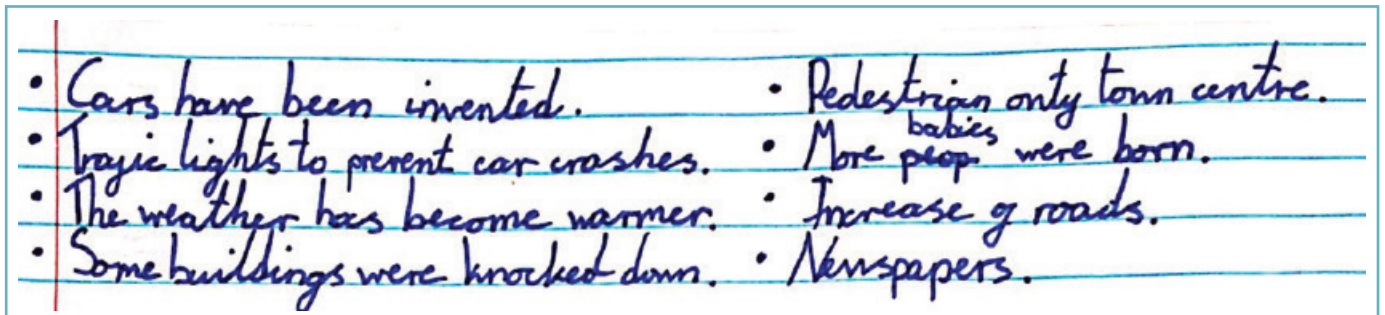 • Cars have been invented.
• Trafic lights to prevent car crashes.
• The weather has become warmer.
• Some buildings were knocked down.
• Pedestrian only town centre.
• More peop babies were born.
• Increase of roads.
• Newspapers.